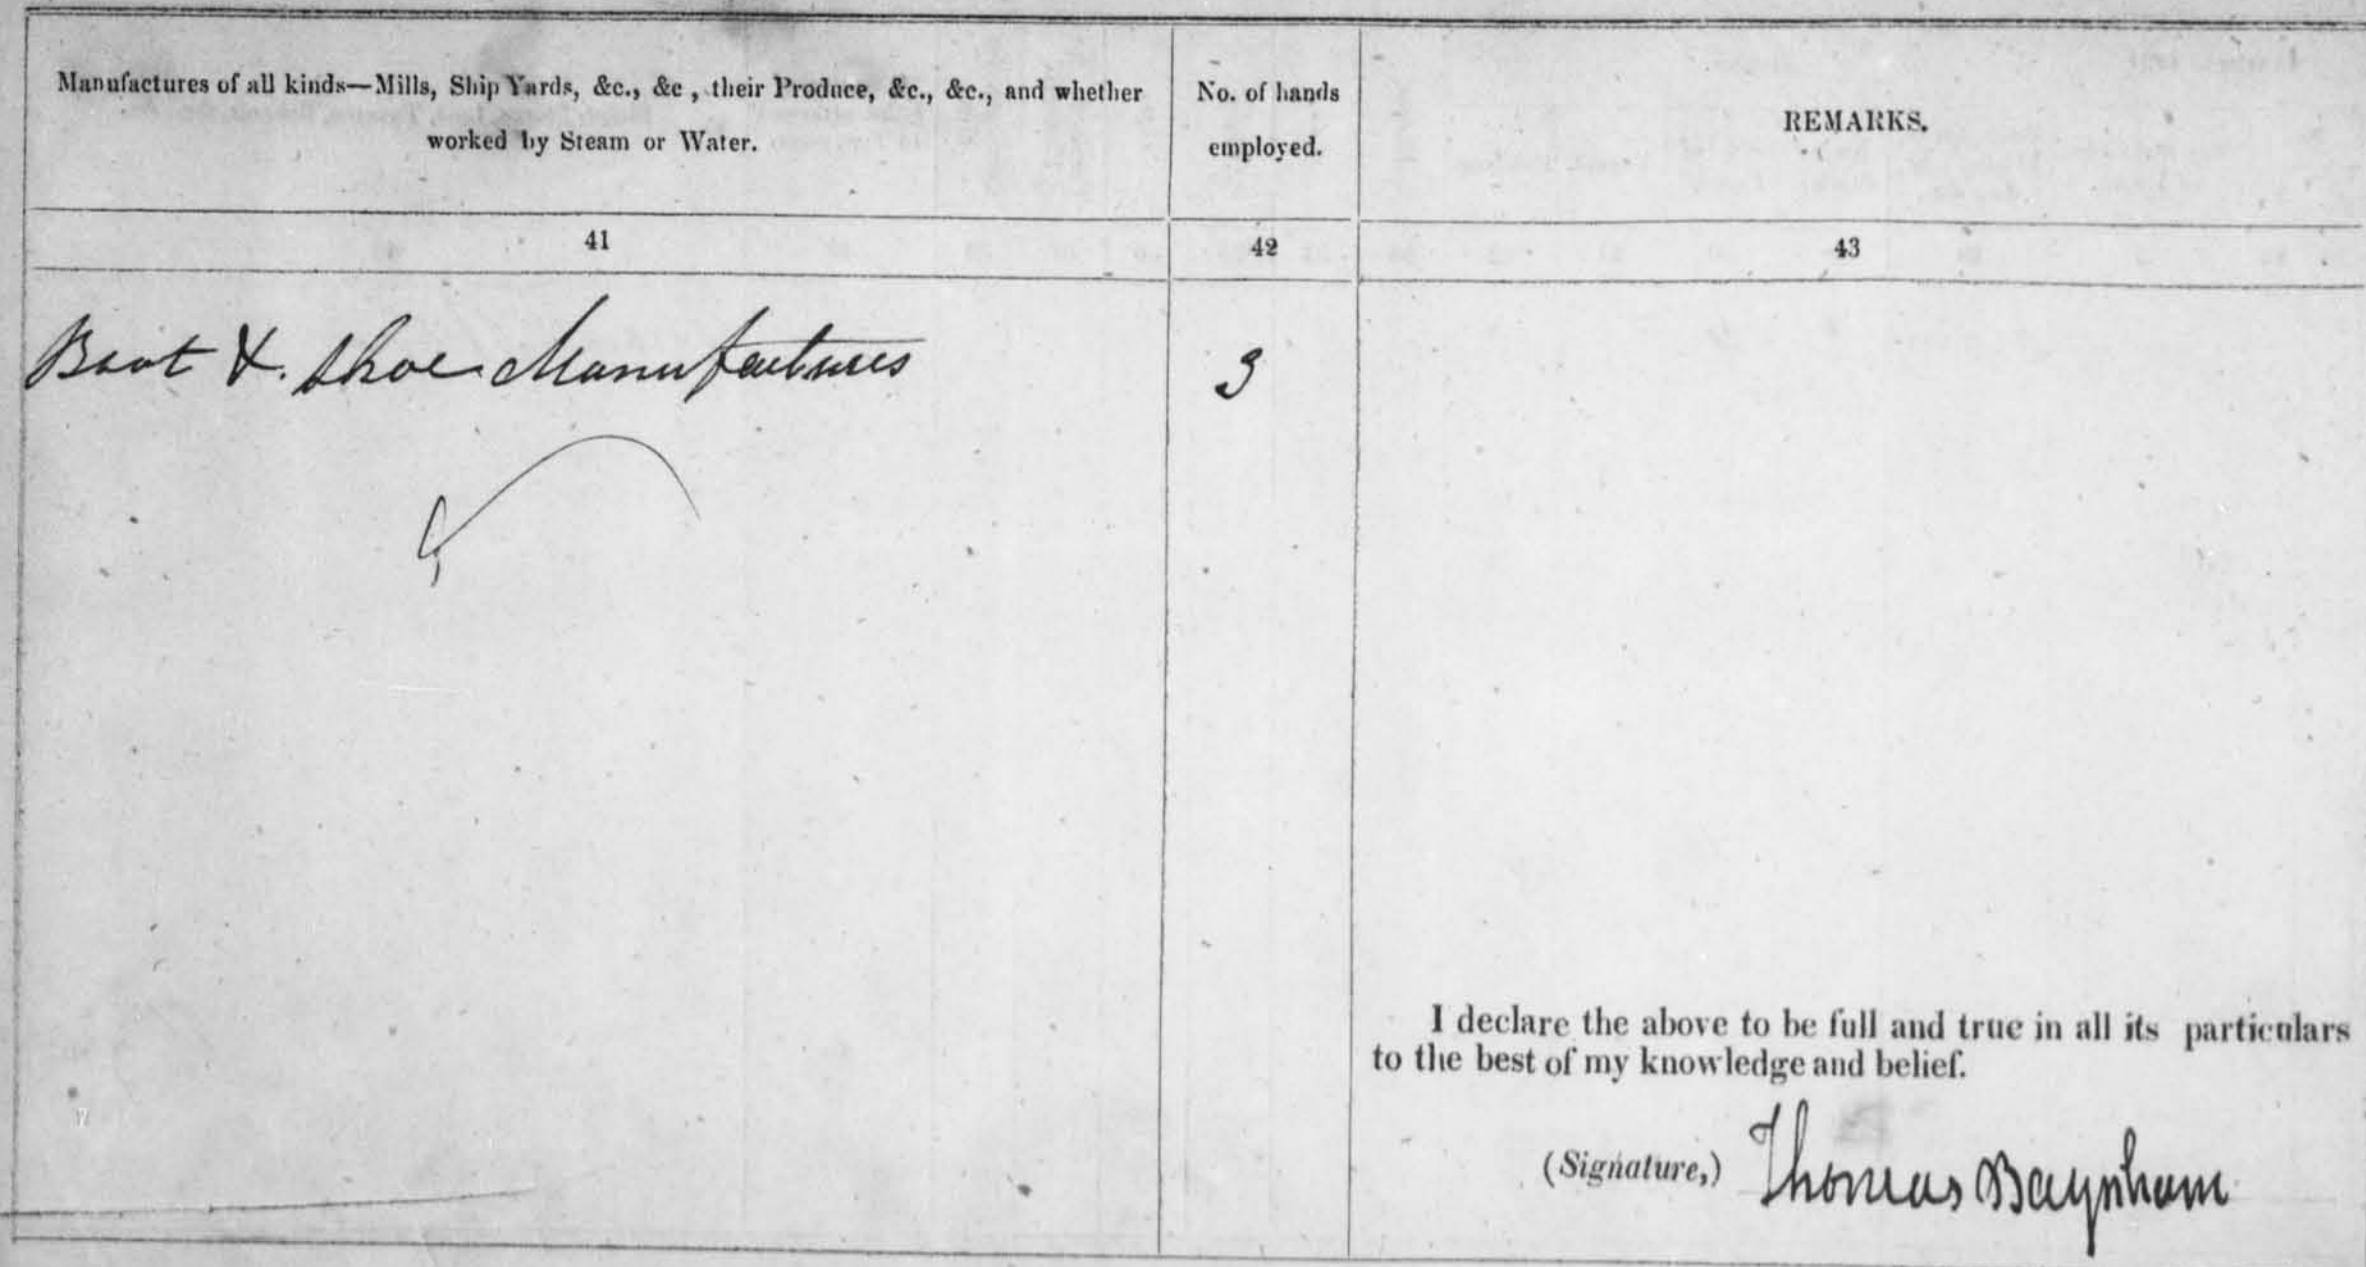 Manufactures of all kinds—Mills, Ship Yards, &c., &c , their Produce, &c., &c., and whether
worked by Steam or Water.
No. of hands
employed.
REMARKS.
41
42
43
Boot & Shoe Manufactures
3
I declare the above to be full and true in all its particulars
to the best of my knowledge and belief.
(Signature,) Thomas Baynham